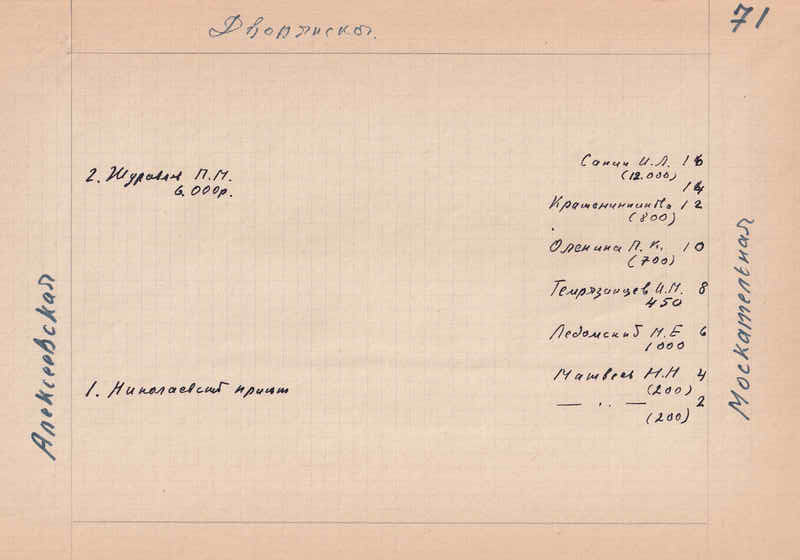 Дворянская.
71
2. Журавлев П.М.
6.000р.
1. Николаевский приют
Санин И.Л. 16
(12.000)
14
Крашенинников 12
(800)
Оленина П.К. 10
(700)
И.М. 8
450
Ледомский М.Е 6
1000
Матвеев Н.Н 4
(200)
— „ — 2
(200)
Алексеевская
Москательная